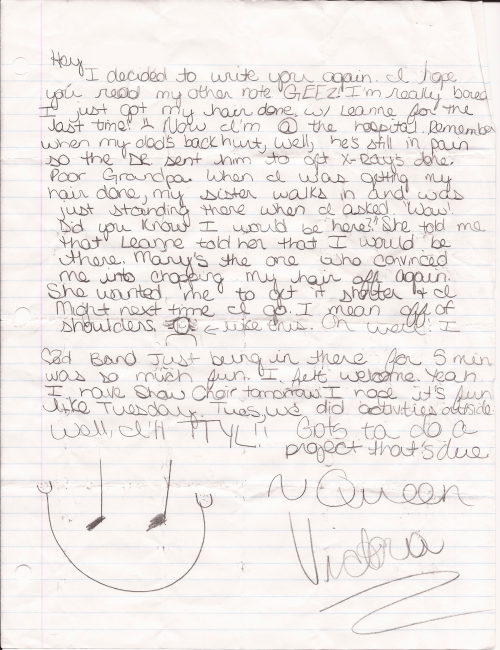 Hey,
I decided to write you again. I hope
you read my other note GEEZ! I'm really bored
I just got my hair done w/ Leanne for the
last time! Now I'm @ the hospital. Remember
when my dad's back hurt, well, he's still in pain
so the sent him to get X-Rays done.
Poor Grandpa. When I was getting my
hair done, my sister walks in and was
just standing there when I asked, "Wow!
Did you know I would be here?" She told me
that Leanne told her that I would be
there. Mary's the one who convinced
me into chopping my hair off again.
She wanted me to get it shorter & I
might next time I go. I mean off of
shoulders. ← like this. Oh well! I
Band Just being in there for 5 min
was so much fun. I felt welcome. Yeah
I have Show Choir tomorrow I hope it's fun
like Tuesday. Tues, we did activities outside
Well, I'll TTYL!! Gots to do a
project that's due
~ Queen
Victoria